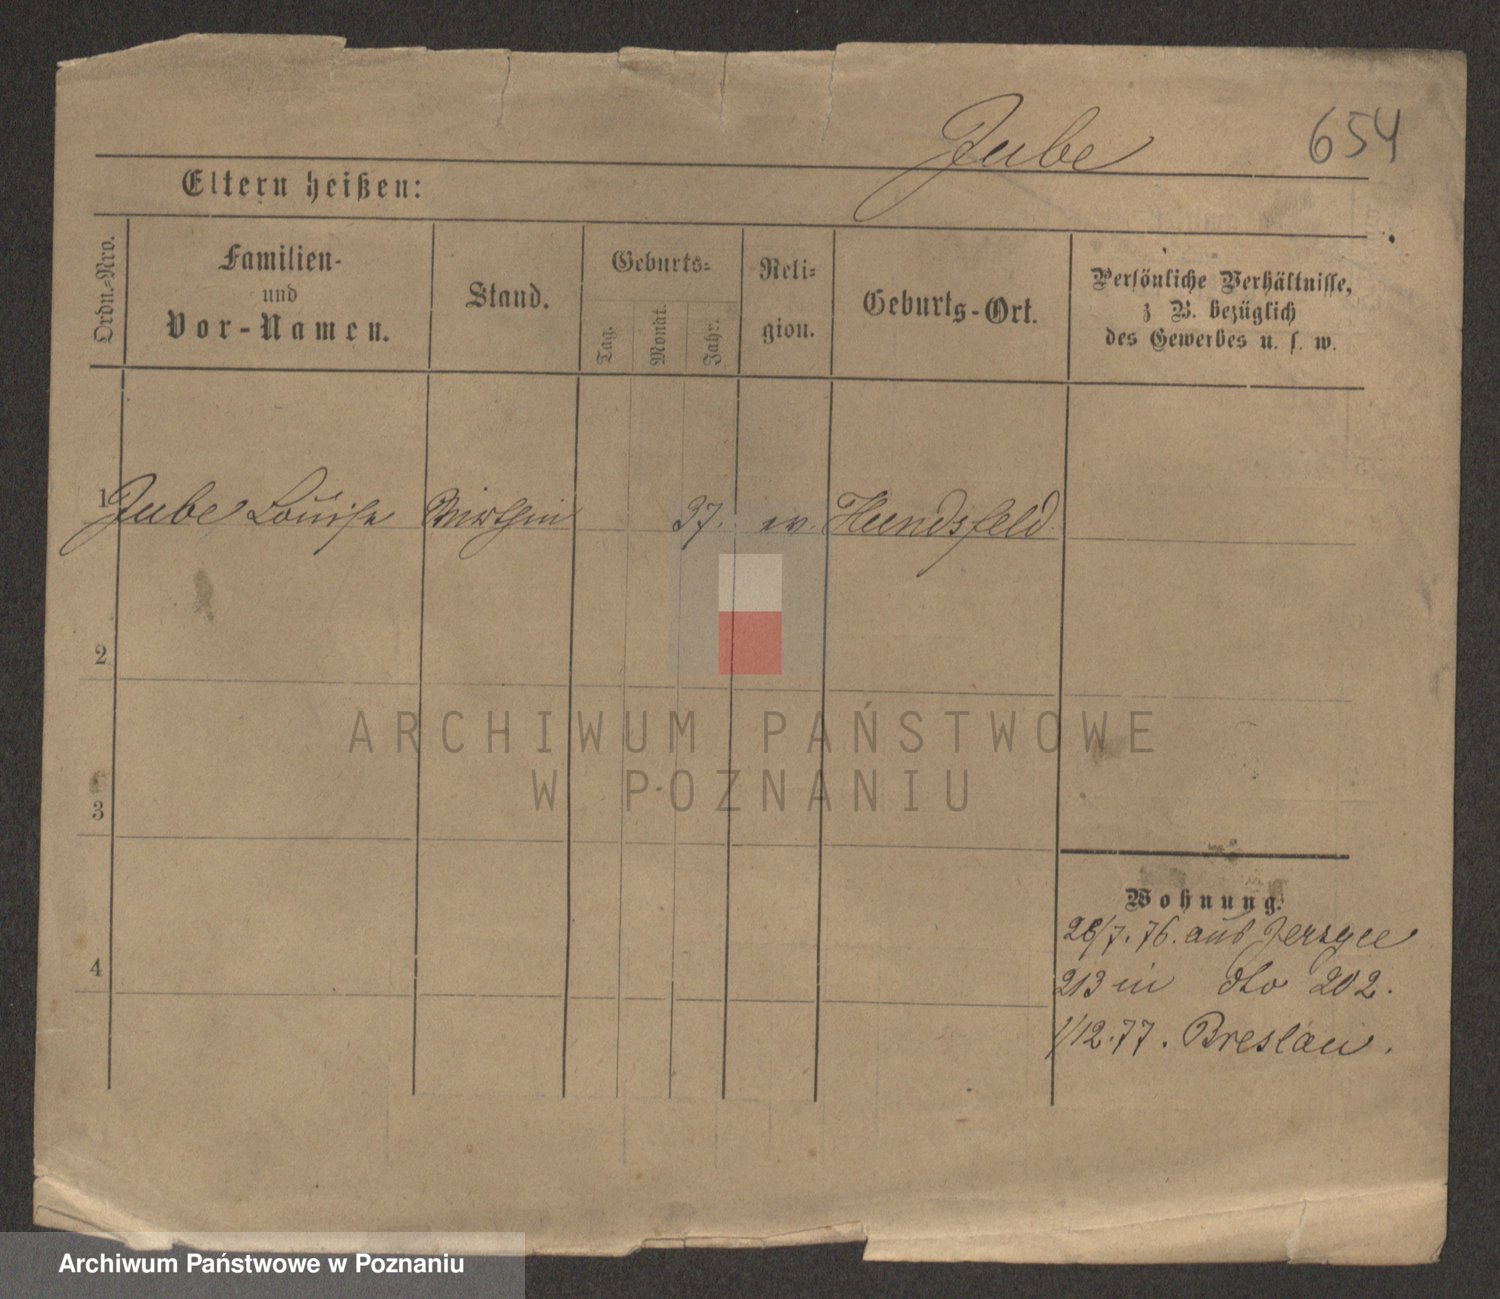 Jube 654
Eltern heißen:
Ordn.-Nro.
Familien-
und
Vor-Namen.
Stand.
Geburts-
Tag.
Monat.
Jahr.
Reli-
gion.
Geburts-Ort.
Persönliche Verhältnisse,
z B. bezüglich
des Gewerbes u. s. w.
1 Jube Louise Wirthin 37. ev. Hundsfeld
2
3
4
Wohnung.
28/7. 76. aus Jerzyce
213 in dto 202.
1/12. 77. Breslau.
ARCHIWUM PAŃSTWOWE
W POZNANIU
Archiwum Państwowe w Poznaniu